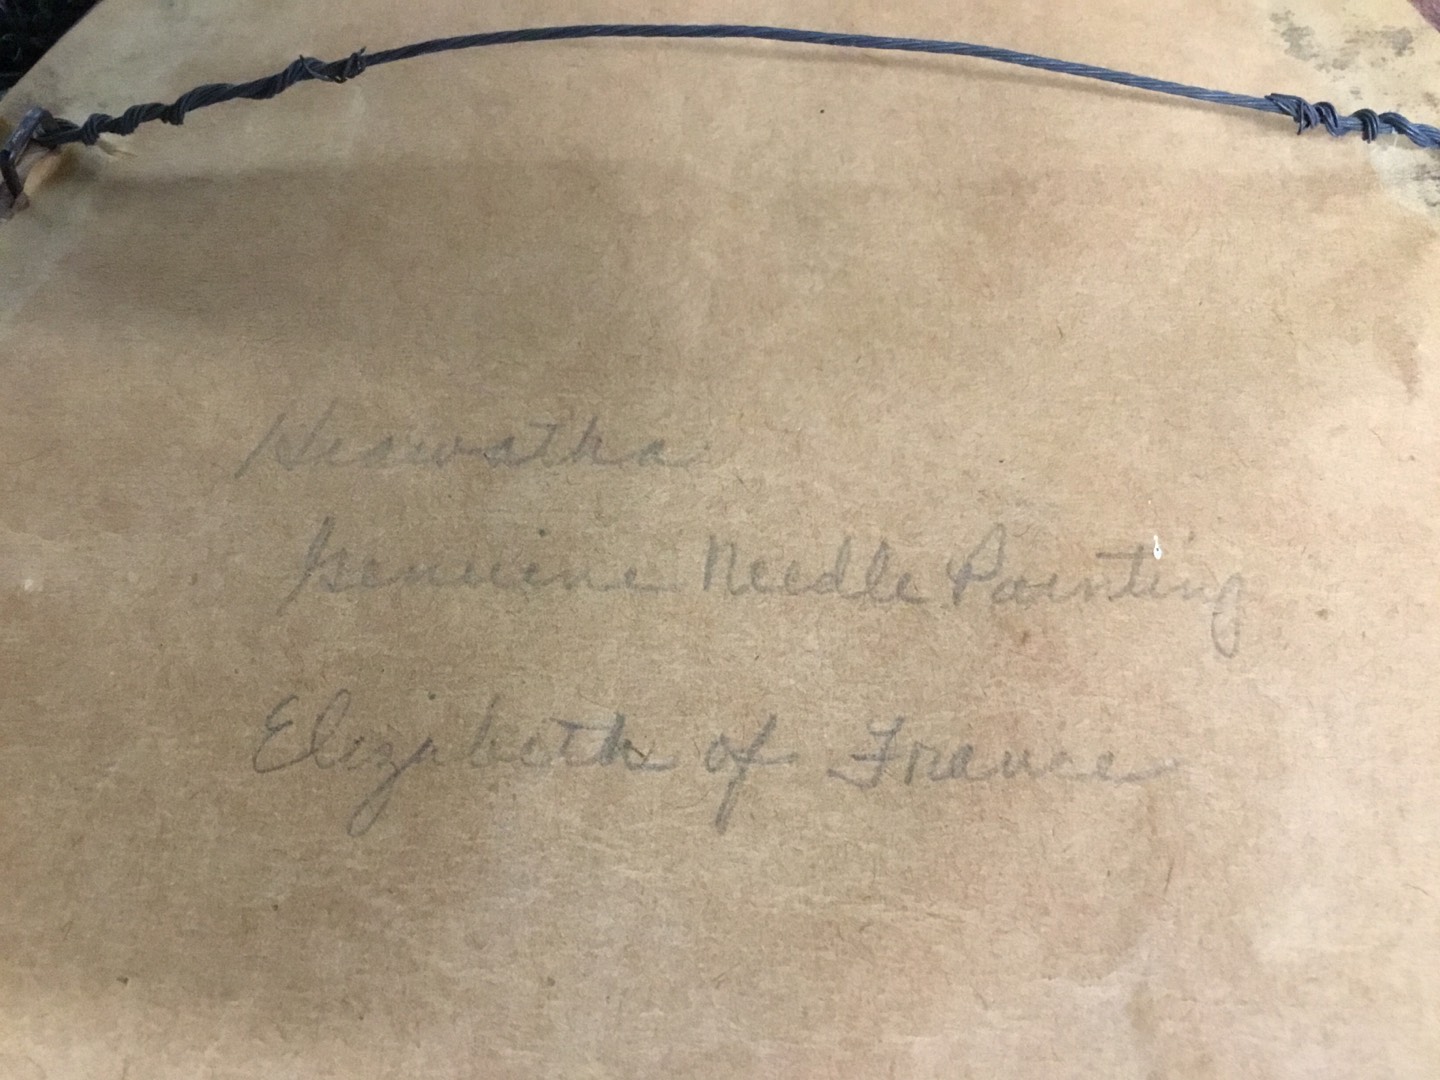 Hiawatha
Genuine Needle Painting
Elizabeth of France